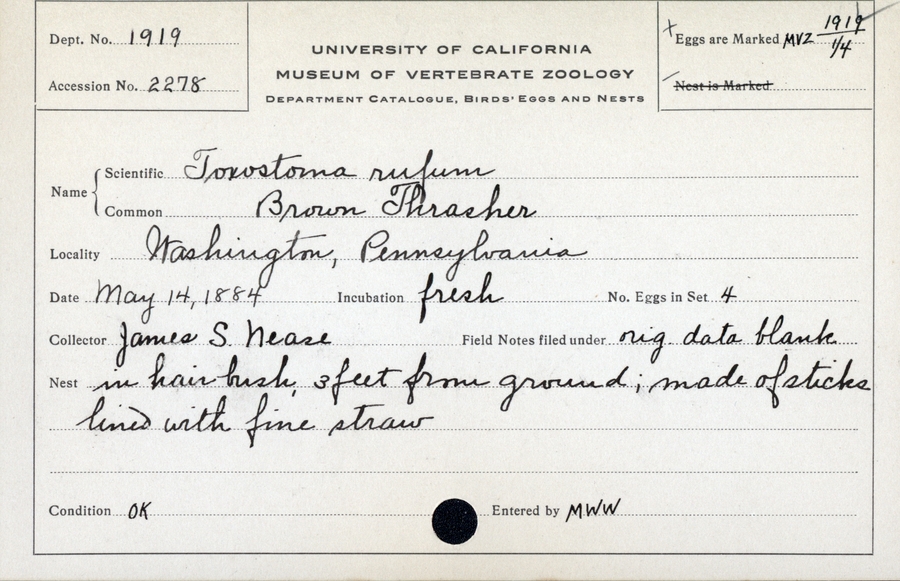 Dept. No. 1919
Accession No. 2278
UNIVERSITY OF CALIFORNIA
MUSEUM OF VERTEBRATE ZOOLOGY
DEPARTMENT CATALOGUE, BIRDS' EGGS AND NESTS
Eggs are Marked MVZ 1919
1/4
Nest is Marked
Name
Scientific Toxostoma rufum
Common Brown Thrasher
Locality Washington, Pennsylvania
Date May 14, 1884 Incubation fresh No. Eggs in Set 4
Collector James S. Nease Field Notes filed under orig data blank
Nest in hair bush, 3 feet from ground; made of sticks
lined with fine straw
Condition OK Entered by MWW